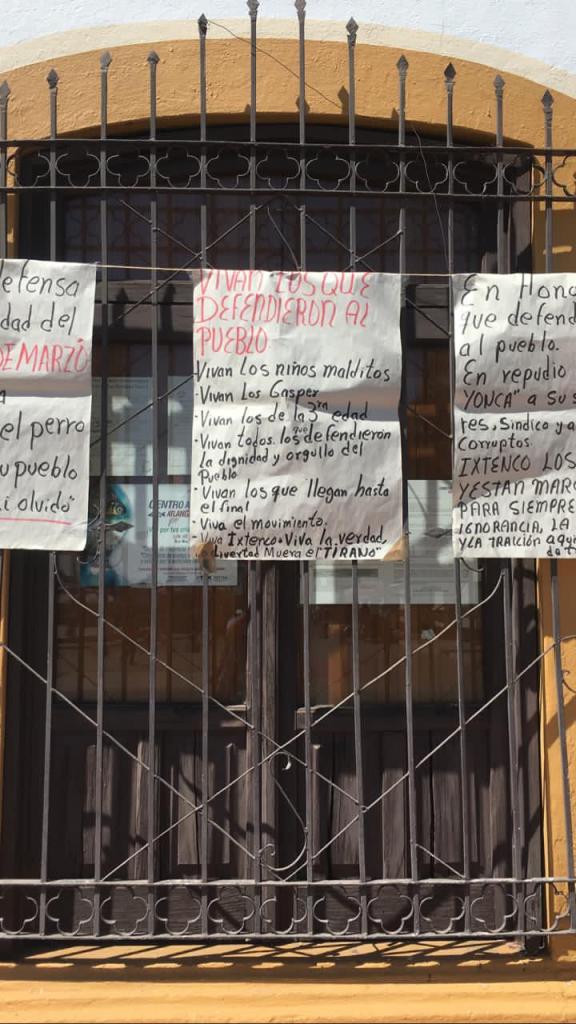 efensa
dad del
DE MARZO
a
el perro
u pueblo
i olvido"
VIVAN LOS QUE
DEFENDIERON AL
PUEBLO
-Vivan Los niños malditos
-Vivan Los Gasper
-Vivan los de la 3ra edad
-Vivan todos los que defendieron
la dignidad y orgullo del
Pueblo
-Vivan los que llegan hasta
el final
-Viva el movimiento.
-Viva Ixtenco-Viva la verdad,
Livertad Muera el "TIRANO"
En Hono
que defend
al pueblo.
En repudio
YONCA" a Su s
res, Sindico y a
Corruptos.
IXTENCO LOS
YESTAN MARC
PARA SIEMPRE
IGNORANCIA, LA
Y LA TRAICIÓN aqui
CENTRO A